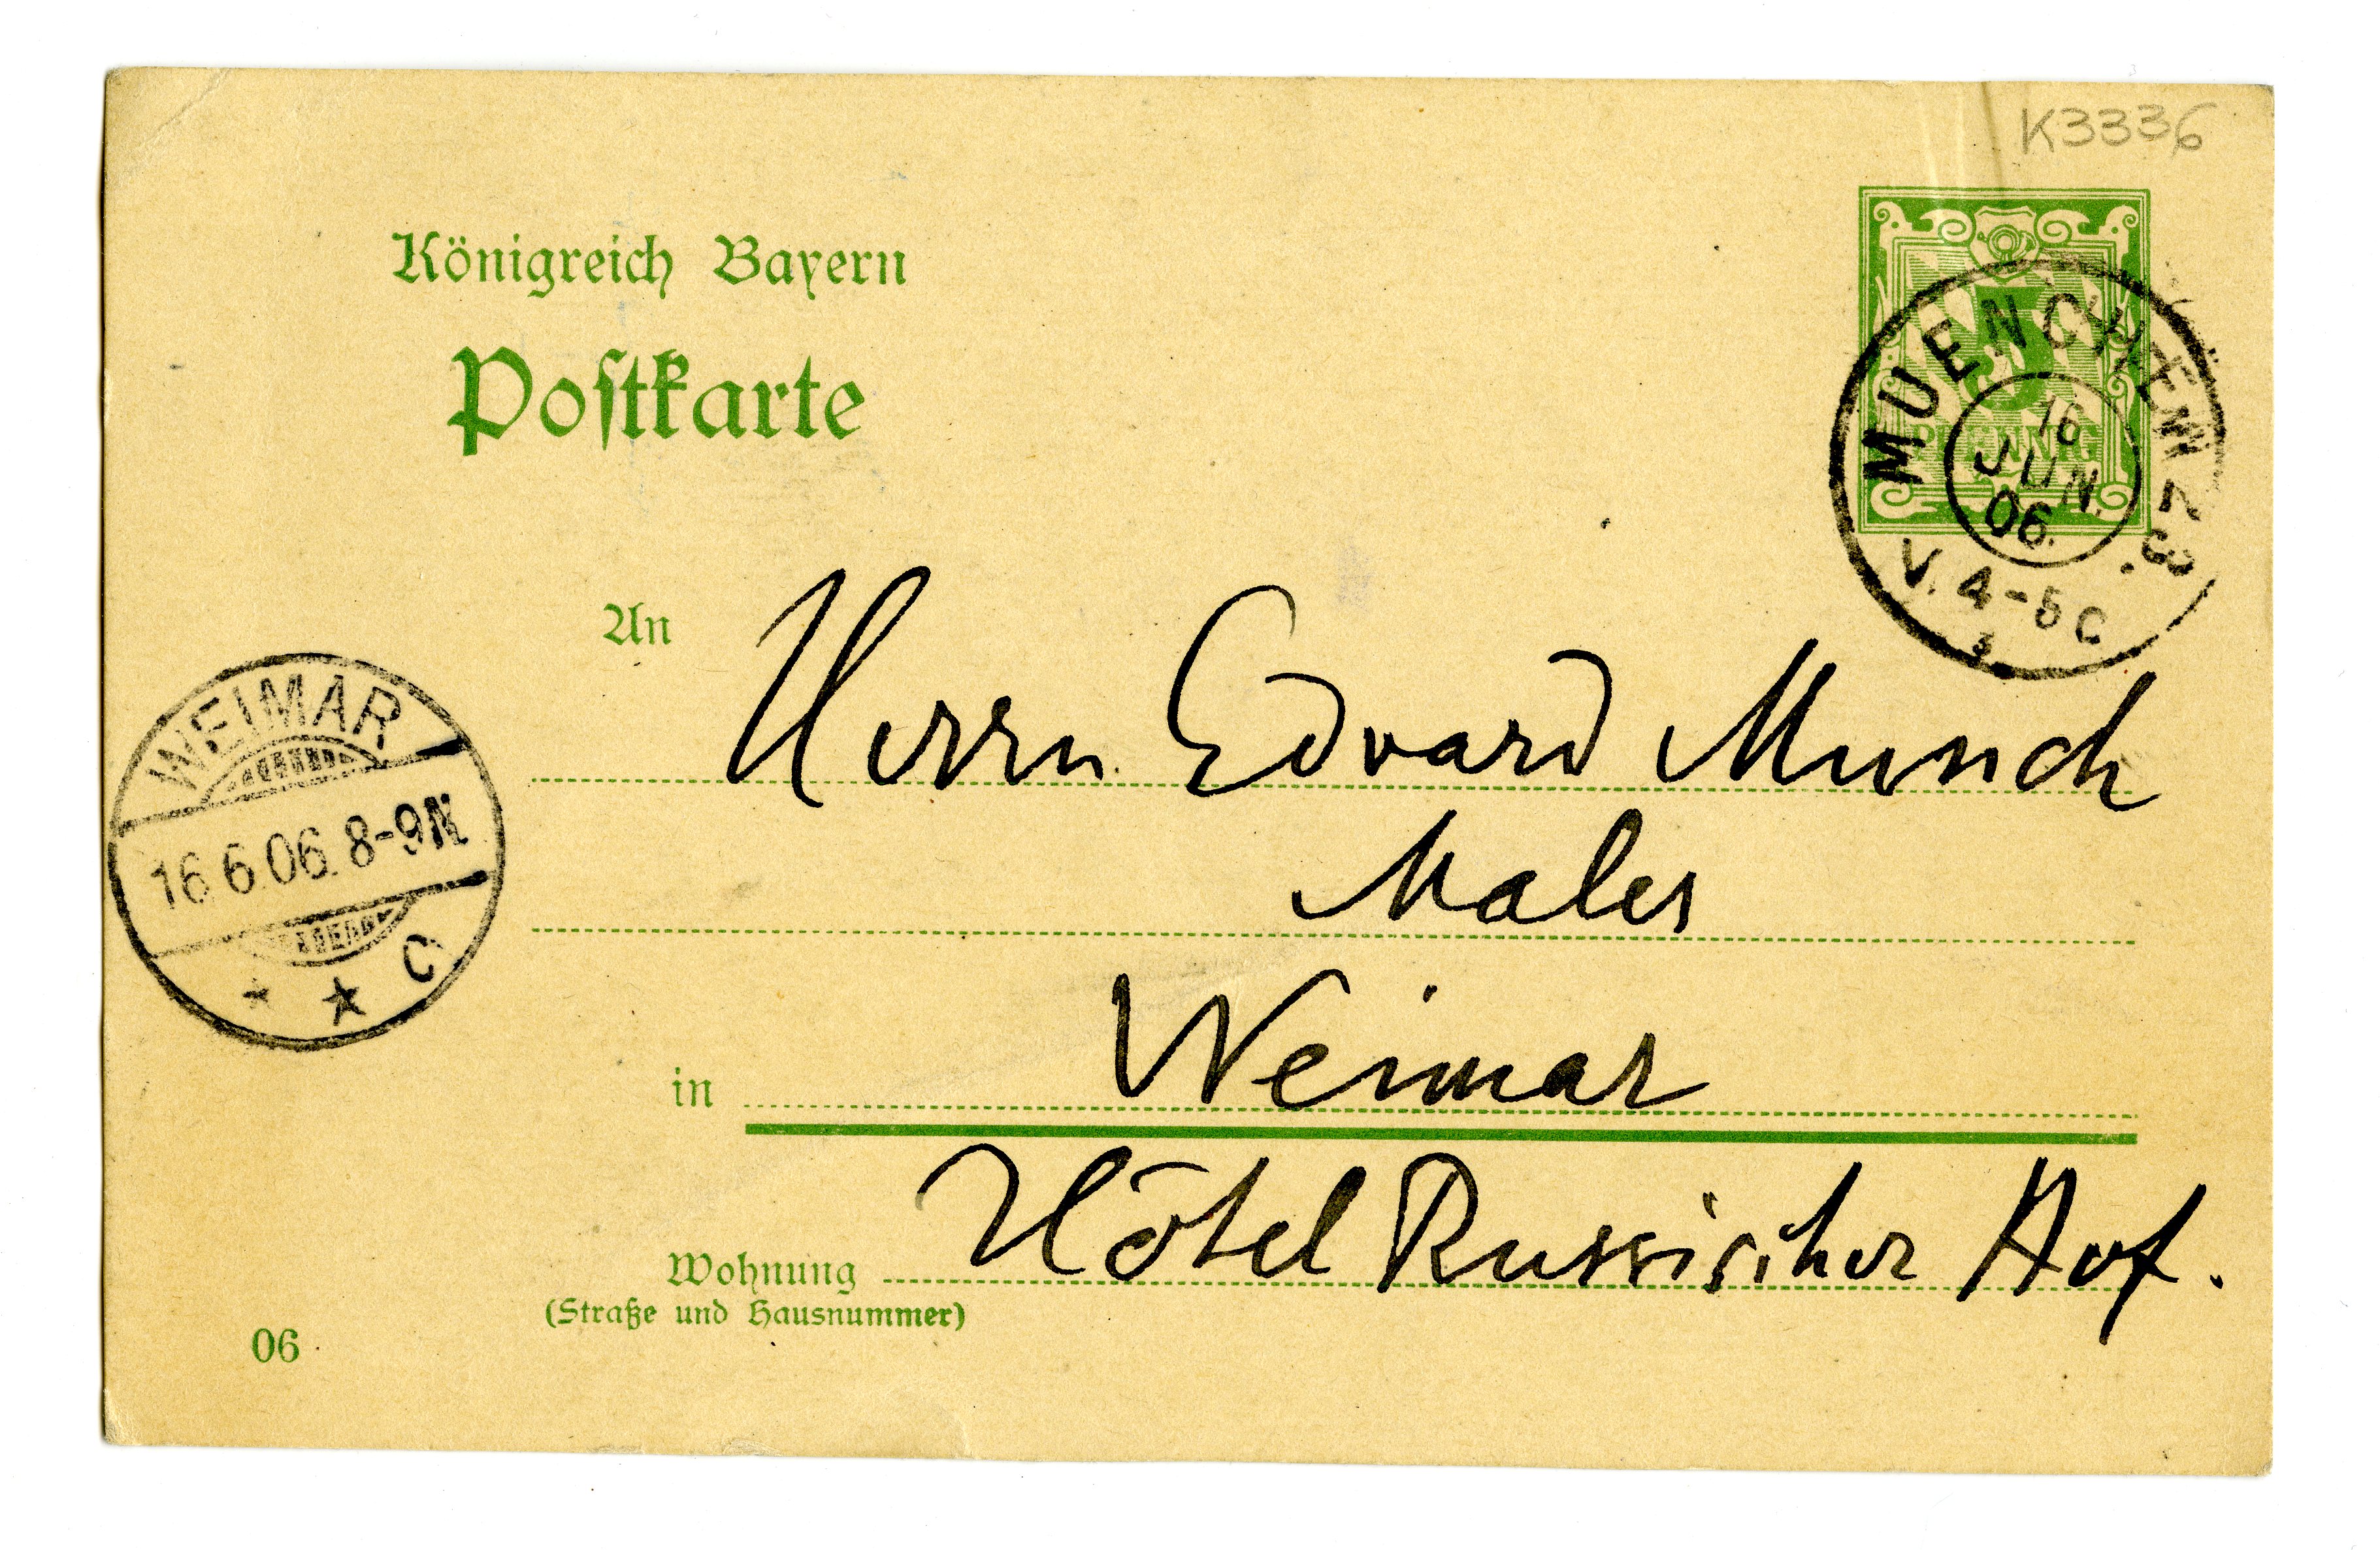 K3336
Königreich Bayern
Postkarte
5
PFENNIG
MUENCHEN 23.
16
JUN.
06.
V. 4-5 C
An
Herrn Edvard Munch
Maler
WEIMAR
16.6.06. 8-9N.
* * C
in Weimar
Hôtel Russischer Hof.
Wohnung
(Straße und Hausnummer)
06